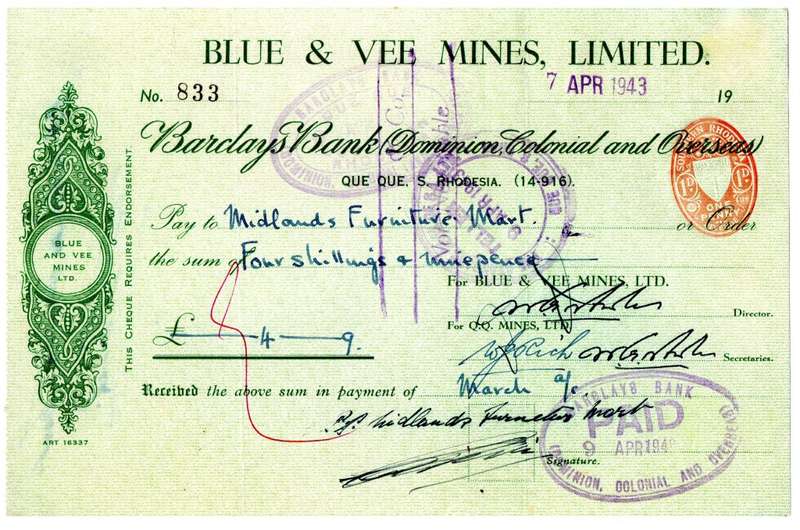 BLUE & VEE MINES, LIMITED.
No. 833
7 APR 1943
19
Barclays Bank (Dominion, Colonial and Overseas)
QUE QUE, S. RHODESIA. (14-916).
Pay to Midlands Furniture Mart. or Order
the sum of Four shillings & ninepence
For BLUE & VEE MINES, LTD.
Director.
For Q.Q. MINES, LTD.
£ 4 9
Secretaries.
Received the above sum in payment of March a/c
p.p. Midlands Furniture Mart
Signature.
BLUE
AND VEE
MINES
LTD.
THIS CHEQUE REQUIRES ENDORSEMENT.
ART 16337
SOUTHERN RHODESIA
1D 1D
ONE PENNY
& Co.
BARCLAYS BANK
PAID
9 APR 194
(DOMINION, COLONIAL AND OVERSEAS)